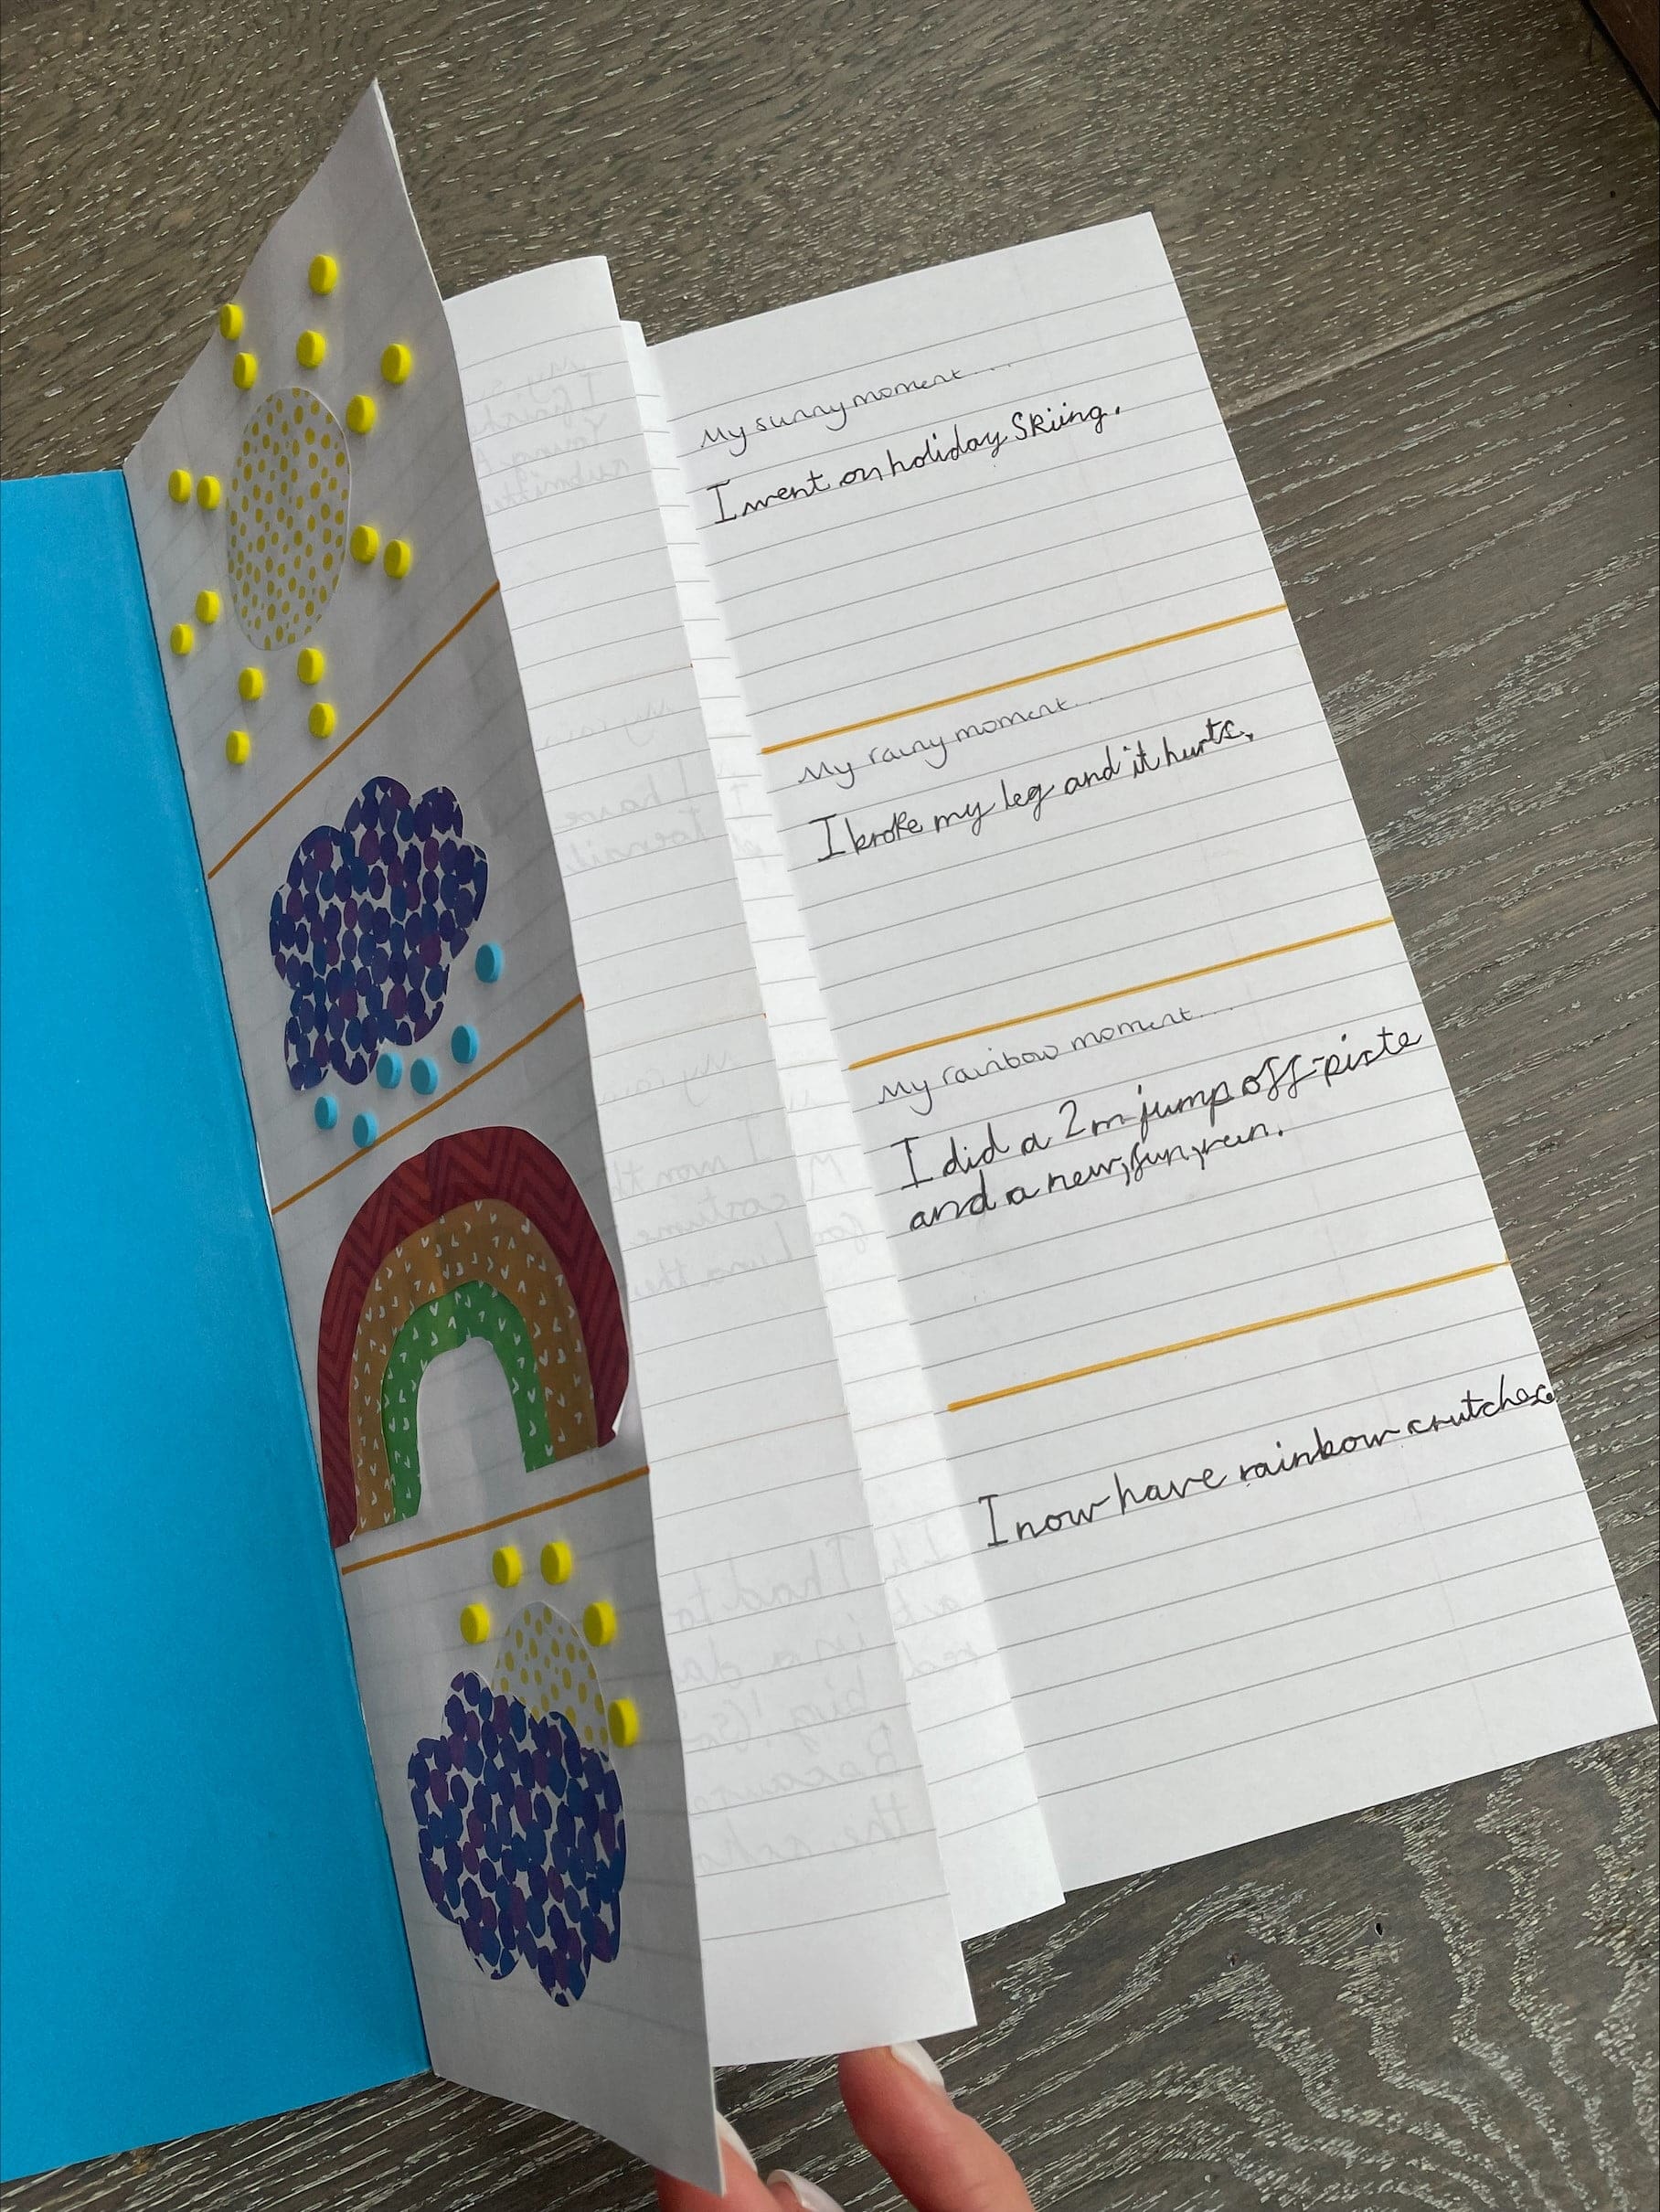 My sunny moment...
I went on holiday Skiing.
My rainy moment...
I broke my leg and it hurts.
My rainbow moment...
I did a 2m jump off-piste
and a new, fun, run.
I now have rainbow crutches.